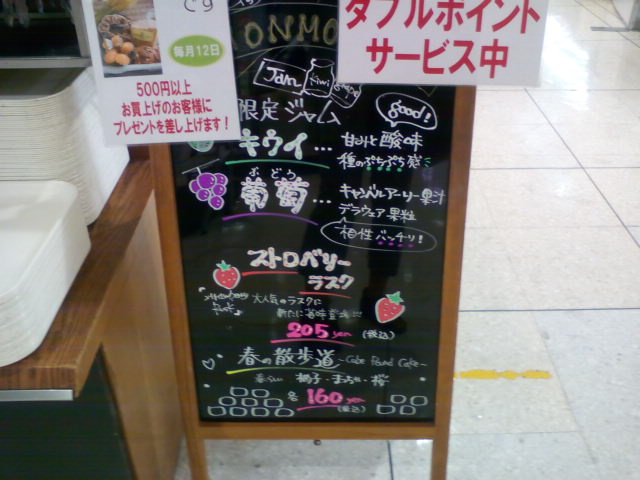 です
毎月12日
500円以上
お買上げのお客様に
プレゼントを差し上げます!
ダブルポイント
サービス中
DONMO
Jam
kiwi
限定ジャム
good!
キウイ… 甘みと酸味
種のぷちぷち感
ぶどう
葡萄… キャンベルアーリー果汁
デラウェア果粒
相性バッチリ!
ストロベリー
ラスク
大人気のラスクに
新たに苺味登場!!!
205yen (税込)
春の散歩道 ~Cake Pound Cake~
春らしい 柚子・まっちゃ・桜
各160yen
(税込)